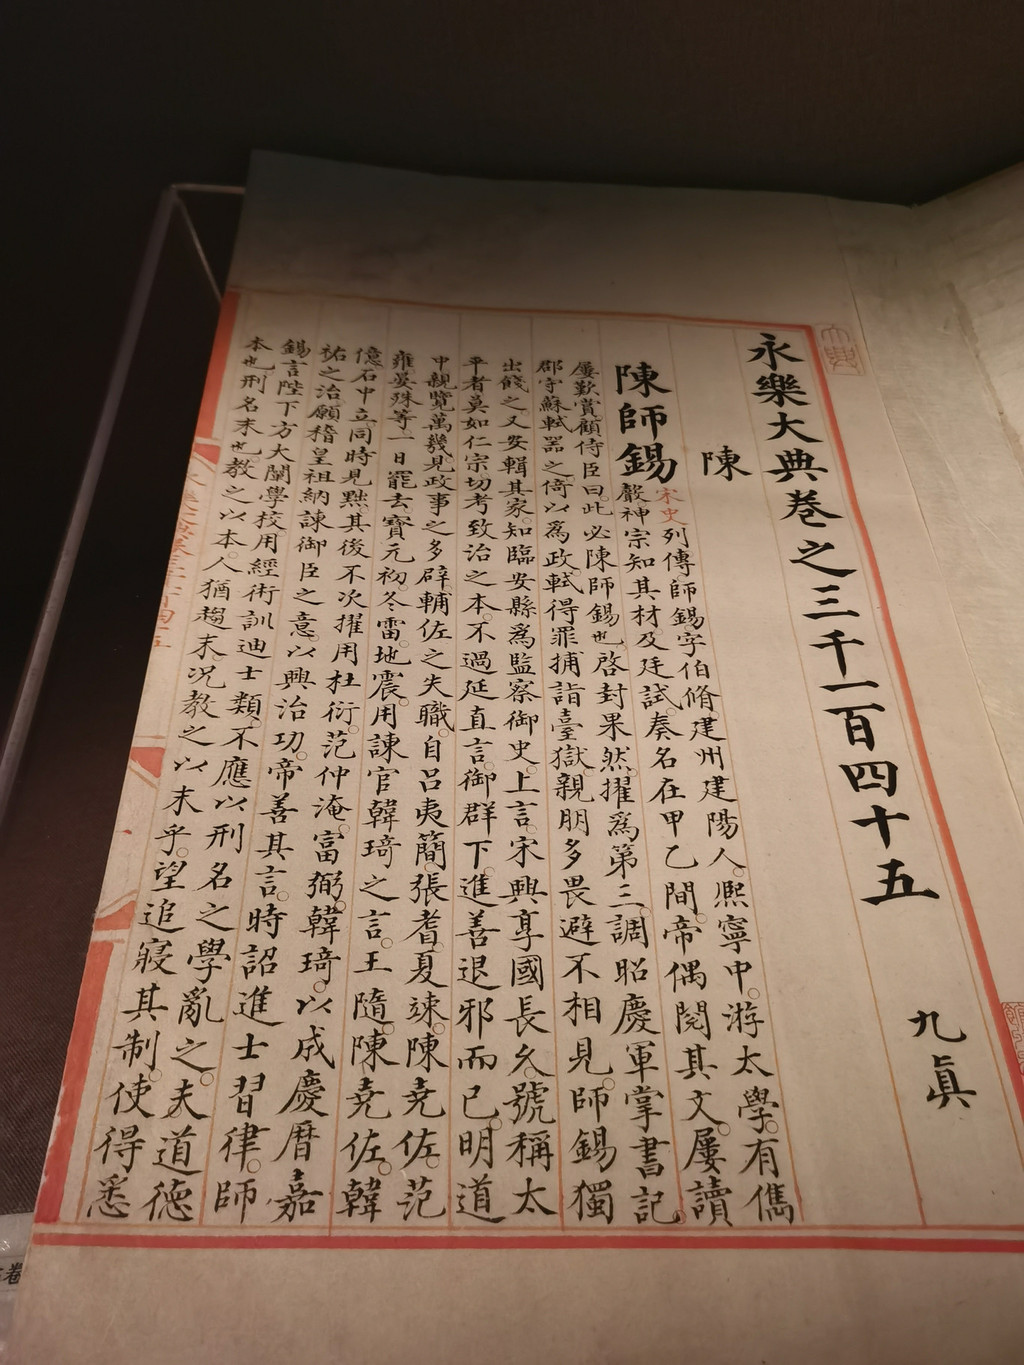 永樂大典卷之三千一百四十五 九真
陳
陳師錫
宋史列傳師錫字伯脩建州建陽人熙寧中游太學有儁
聲神宗知其材及廷試奏名在甲乙間帝偶閱其文屢讀
屢歎賞顧侍臣曰此必陳師錫也啓封果然擢為第三調昭慶軍掌書記
郡守蘇軾器之倚以為政軾得罪捕詣臺獄親朋多畏避不相見師錫獨
出餞之又安輯其家知臨安縣為監察御史上言宋興享國長久號稱太
平者莫如仁宗切考致治之本不過延直言御群下進善退邪而已明道
中親覽萬幾見政事之多辟輔佐之失職自呂夷簡張耆夏竦陳堯佐范
雍晏殊等一日罷去寶元初冬雷地震用諫官韓琦之言王隨陳堯佐韓
億石中立同時見黜其後不次擢用杜衍范仲淹富弼韓琦以成慶曆嘉
祐之治願稽皇祖納諫御臣之意以興治功帝善其言時詔進士習律師
錫言陛下方大闡學校用經術訓迪士類不應以刑名之學亂之夫道德
本也刑名末也教之以本人猶趨末況教之以末乎望追寢其制使得悉